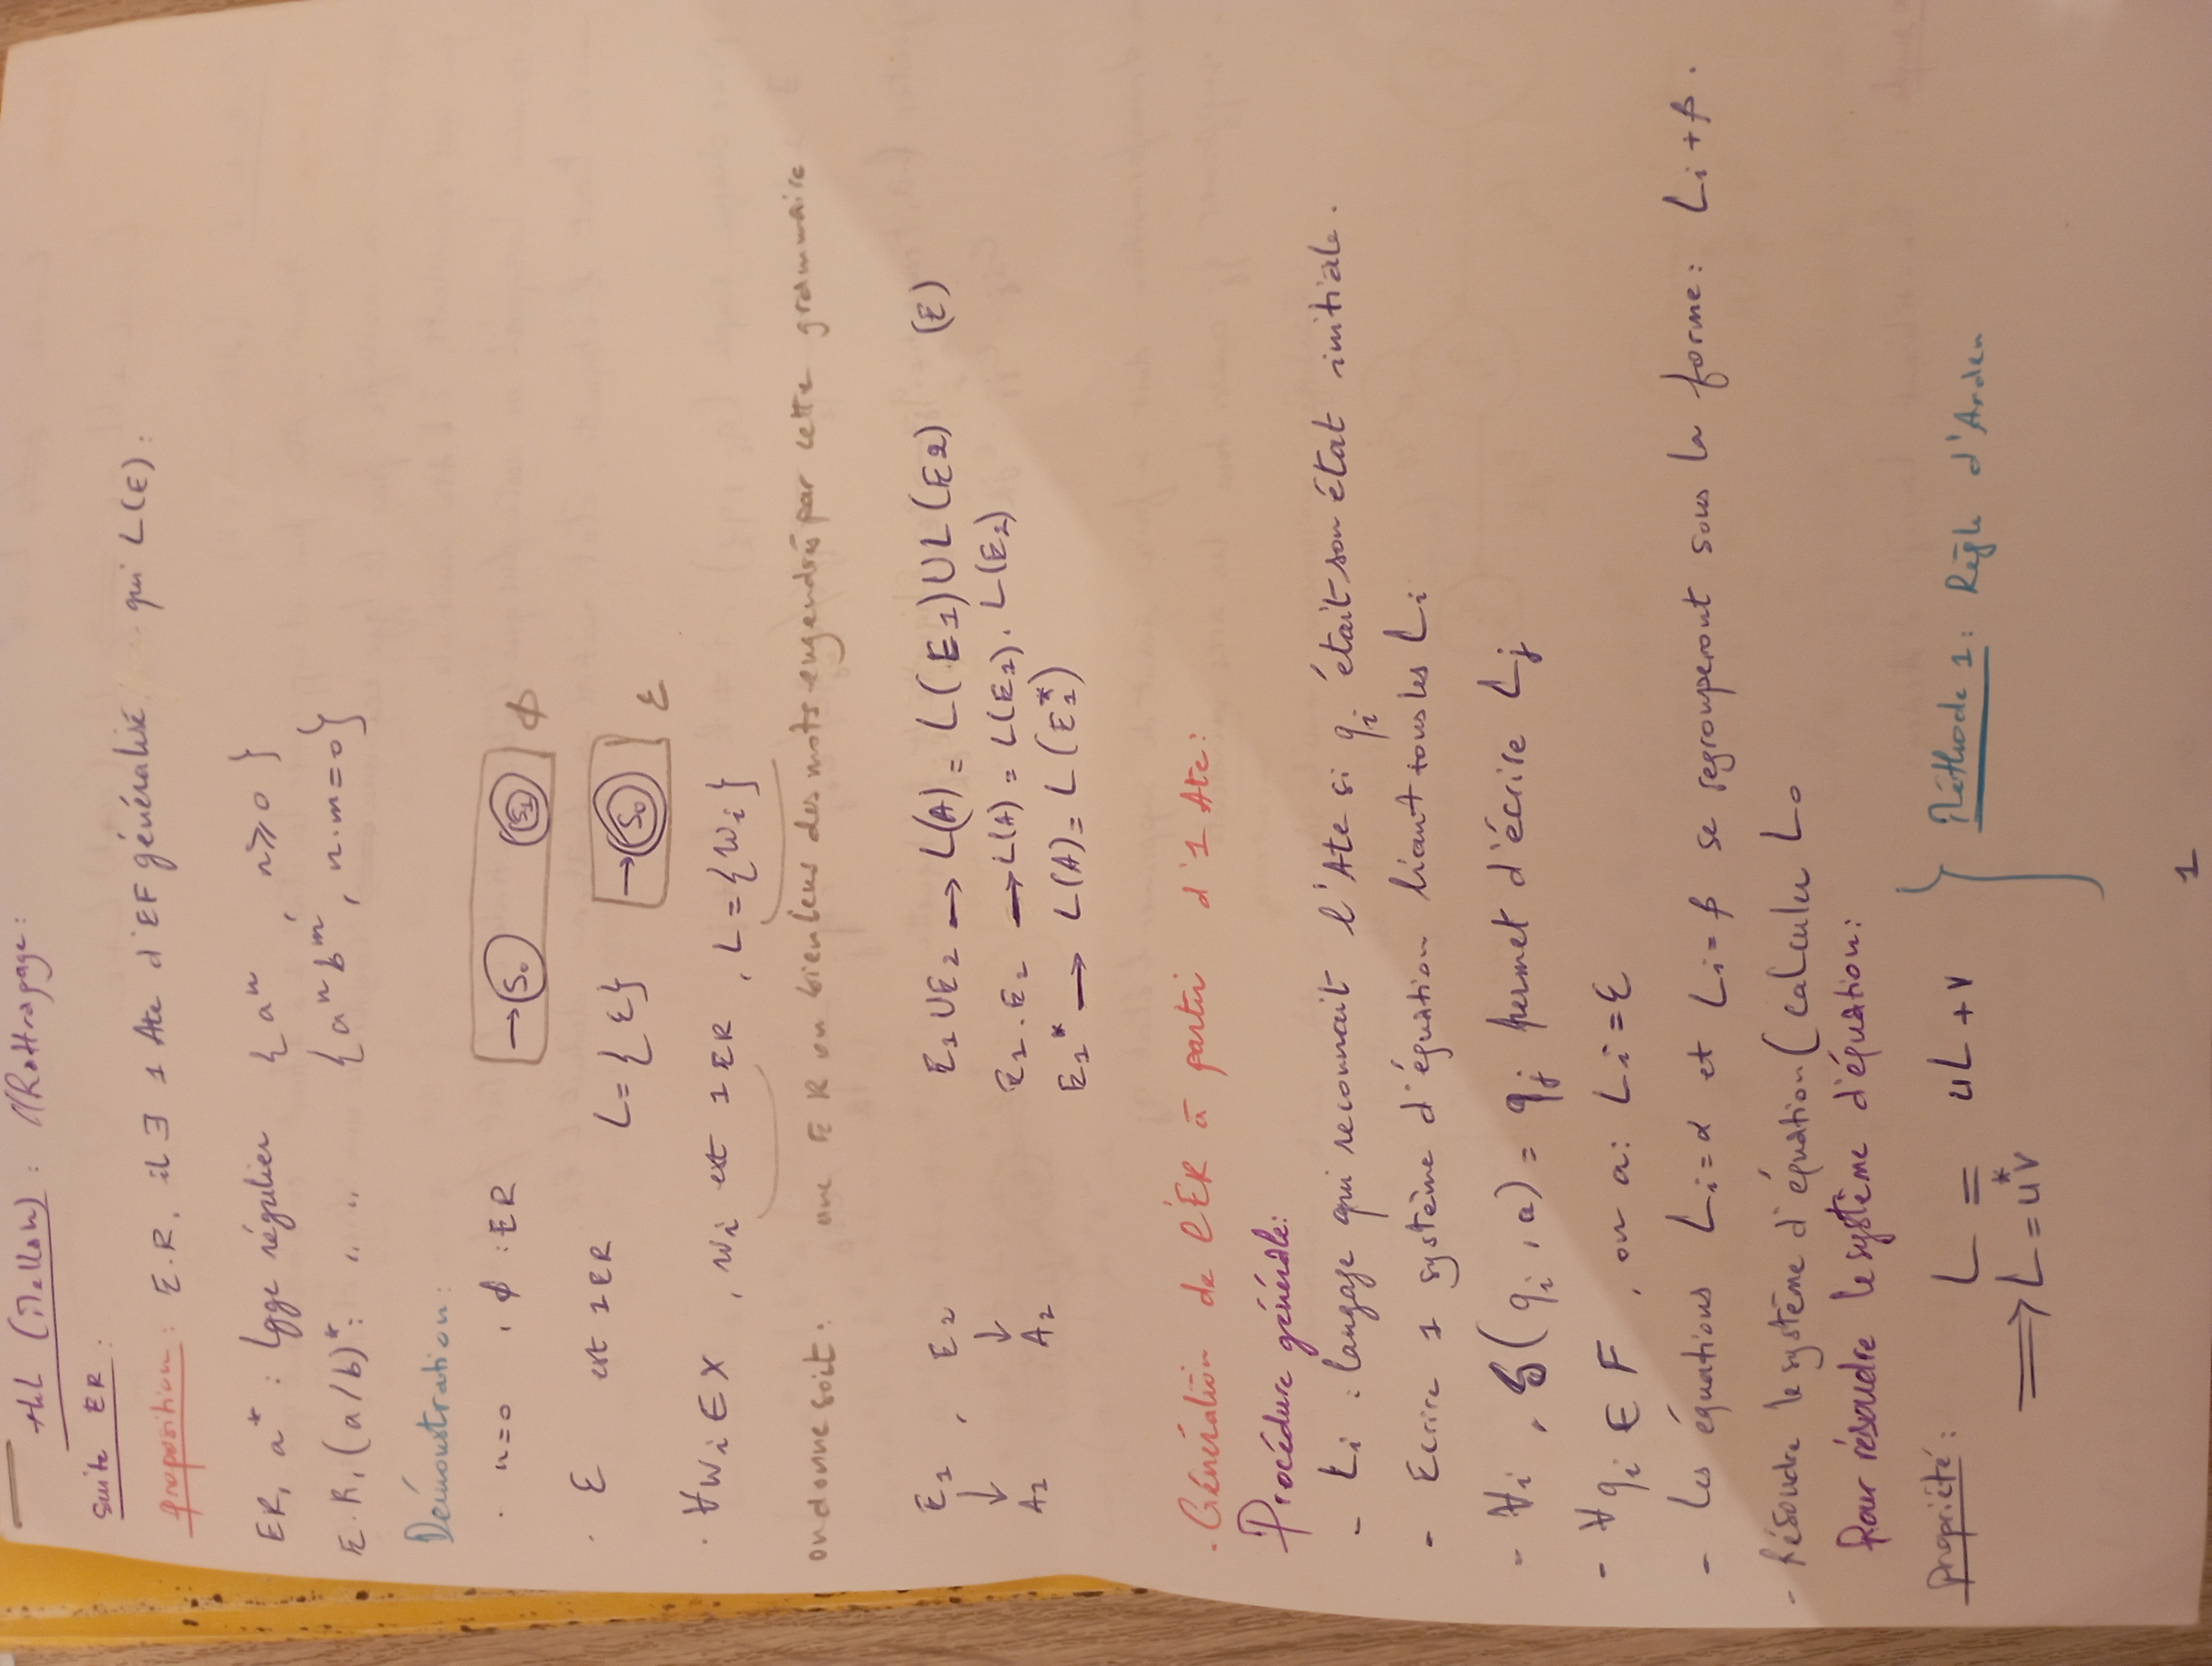 THL (Mellah) : Rattrapage:
Suite ER :
proposition: E.R, il ∃ 1 Ate d'EF généralisé qui L(E):
ER, a* : lgge régulier { aⁿ , n ≥ 0 }
E.R, (a/b)*: " " { aⁿ bᵐ , n.m=0}
Démonstration:
. n=0 , ϕ : ER → S₀ S₁ ϕ
. ε est 1 ER L={ε} → S₀ ε
. ∀wi ∈ X , wi est 1 ER , L={wi}
on donne soit: une ER ou bien l'ens des mots engendrés par cette grammaire
E₁ , E₂ E₁ ∪ E₂ → L(A) = L(E₁) ∪ L(E2) (E)
↓ ↓ E₁ . E₂ → L(A) = L(E₁) . L(E₂)
A₁ A₂ E₁* → L(A) = L(E₁*)
. Génération de l'ER à partir d'1 Ate:
Procédure générale:
- Li : langage qui reconnait l'Ate si qi était son état initiale.
- Ecrire 1 système d'équation liant tous les Li
- ∀i , δ(qi , a) = qj permet d'écrire Lj
- ∀qi ∈ F , on a: Li = ε
- Les équations Li = α et Li = β se regrouperont sous la forme: Li + β .
- Résoudre le système d'équation (calculer L₀
Pour résoudre le système d'équation:
propriété: L = uL + v
⟹ L = u*v
Méthode 1: Règle d'Arden
1